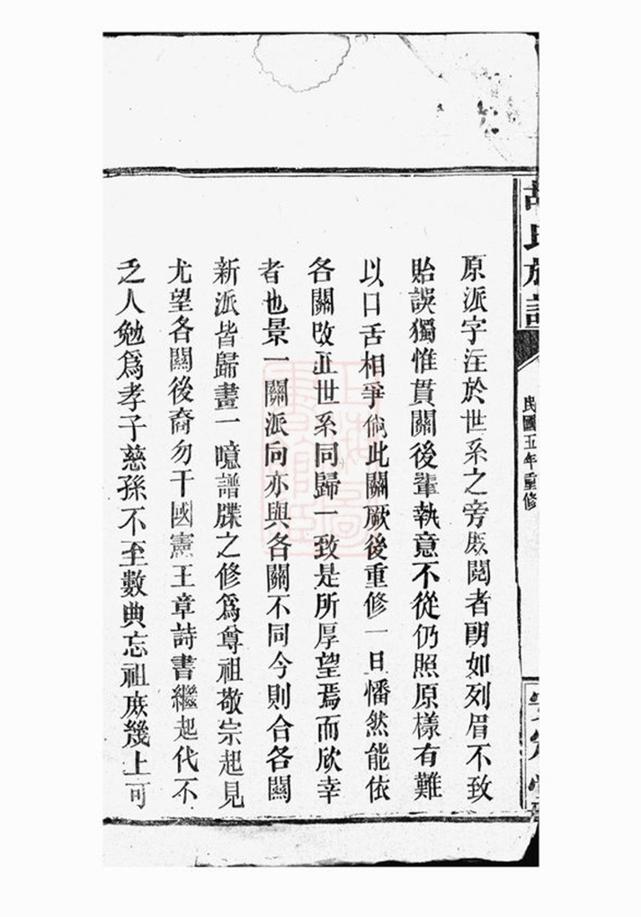 胡氏族譜
民國五年重修
原派字注於世系之旁庶閱者明如列眉不致
貽誤獨惟貫關後輩執意不從仍照原樣有難
以口舌相爭倘此關厥後重修一旦憣然能依
各關改正世系同歸一致是所厚望焉而欣幸
者也景一關派向亦與各關不同今則合各關
新派皆歸畫一噫譜牒之修爲尊祖敬宗起見
尤望各關後裔勿干國憲王章詩書繼起代不
乏人勉爲孝子慈孫不至數典忘祖庶幾上可